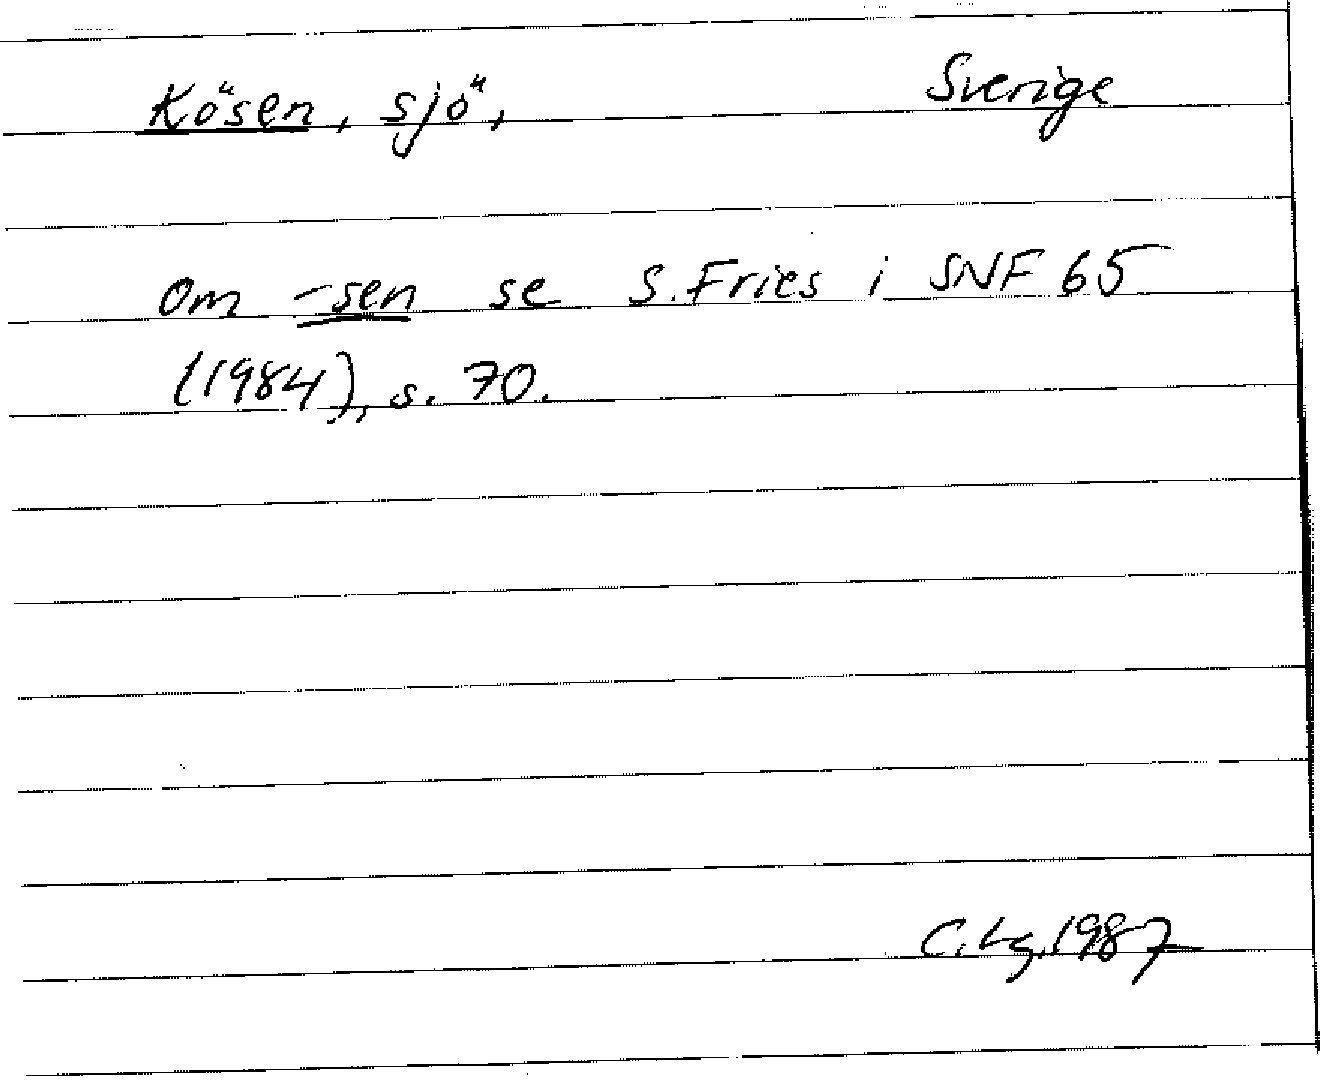 Kösen, sjö, Sverige
Om -sen se S. Fries i SNF 65
(1984), s. 70.
C. Lg. 1987